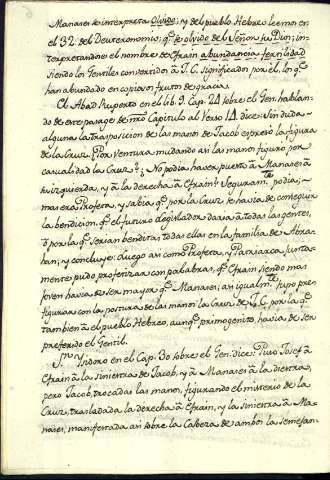 Manases se interpreta Olvido; y del pueblo Hebreo leemos en
el 32. del Deuteronomio; qe. se olvidó del Señor su Dios; in-
terpretandose el nombre de Efrain abundancia fertilidad
siendo los Gentiles convertidos á J.C. significados por él, los qe.
han abundado en copiosos frutos de gracia.
El Abad Ruperto en el lib. 9. Cap. 24 sobre el Gen. hablan-
do de este pasage de nro Capitulo al Verso 14 dice: Sin duda
alguna la trasposicion de las manos de Jacob expresó la figura
de la Cruz. Por ventura mudando asi las manos figuró por
casualidad la Cruz? No podia haver puesto á Manases á
su izquierda, y á la derecha á Efrain? Seguramte. podia;
mas era Profeta, y sabia qe. por la Cruz se havia de conseguir
la bendicion, qe. el futuro Legislador daria á todas las gentes,
ó por la qe. serian benditas todas ellas en la familia de Abra-
han; y concluye: Luego asi como Profeta, y Patriarca justa-
mente pudo profetizar con palabras, qe. Efrain siendo mas
joven havia de ser mayor qe. Manases; asi igualmte. supo pre-
figurar con la postura de las manos la Cruz de J.C. por la qe.
tambien á el pueblo Hebreo, aunqe. primogenito, havia de ser
preferido el Gentil.
Sn. Isidoro en el Cap. 30 sobre el Gen. dice: Puso Josef á
Efrain á la siniestra de Jacob, y á Manases á la diestra,
pero Jacob, trocadas las manos, figurando el misterio de la
Cruz, trasladada la derecha á Efrain, y la siniestra á Ma-
nases, manifestada asi sobre la Cabeza de ambos la semejan-